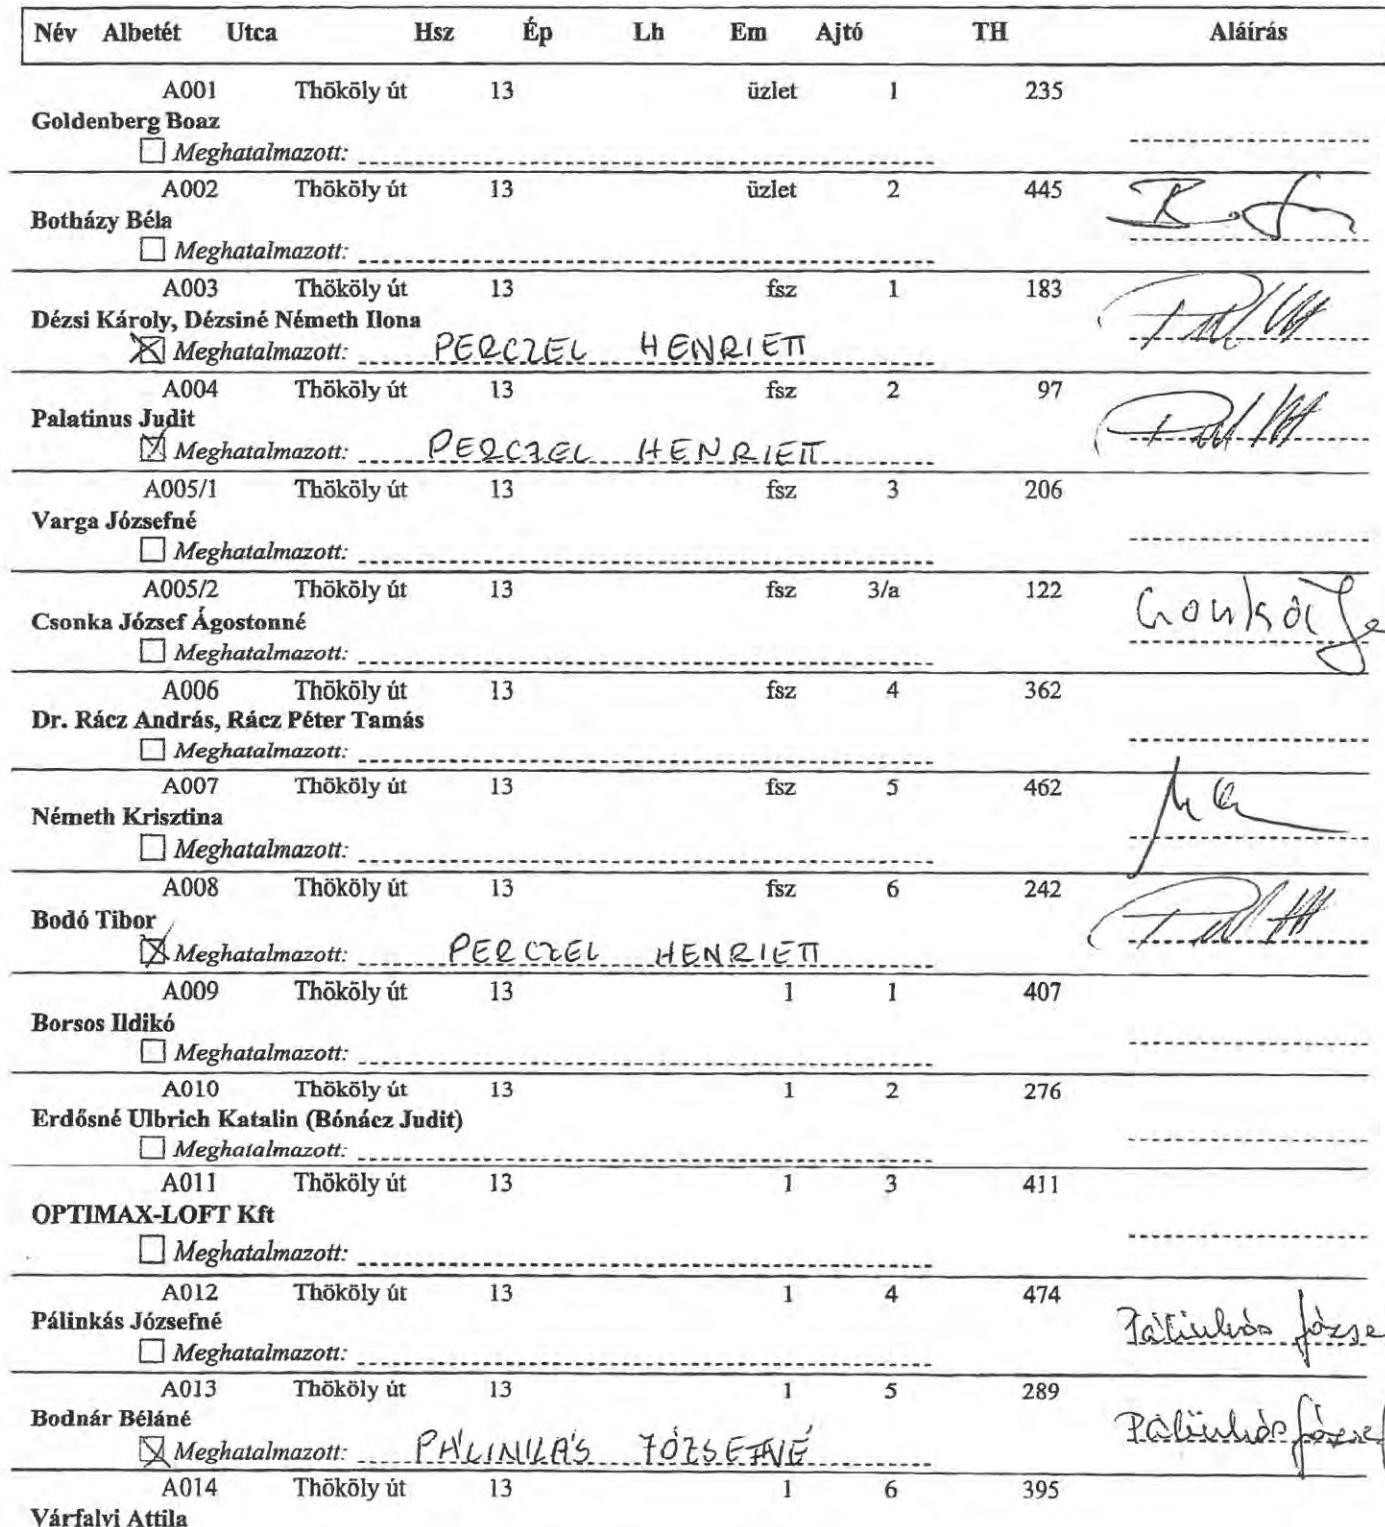 Név Albetét Utca Hsz Ép Lh Em Ajtó TH Aláírás
A001 Thököly út 13 üzlet 1 235
Goldenberg Boaz
Meghatalmazott:
A002 Thököly út 13 üzlet 2 445
Botházy Béla
Meghatalmazott:
A003 Thököly út 13 fsz 1 183
Dézsi Károly, Dézsiné Németh Ilona
Meghatalmazott: PERCZEL HENRIETT
A004 Thököly út 13 fsz 2 97
Palatinus Judit
Meghatalmazott: PERCZEL HENRIETT
A005/1 Thököly út 13 fsz 3 206
Varga Józsefné
Meghatalmazott:
A005/2 Thököly út 13 fsz 3/a 122
Csonka József Ágostonné
Meghatalmazott:
A006 Thököly út 13 fsz 4 362
Dr. Rácz András, Rácz Péter Tamás
Meghatalmazott:
A007 Thököly út 13 fsz 5 462
Németh Krisztina
Meghatalmazott:
A008 Thököly út 13 fsz 6 242
Bodó Tibor
Meghatalmazott: PERCZEL HENRIETT
A009 Thököly út 13 1 1 407
Borsos Ildikó
Meghatalmazott:
A010 Thököly út 13 1 2 276
Erdősné Ulbrich Katalin (Bónácz Judit)
Meghatalmazott:
A011 Thököly út 13 1 3 411
OPTIMAX-LOFT Kft
Meghatalmazott:
A012 Thököly út 13 1 4 474
Pálinkás Józsefné Pálinkás Józse
Meghatalmazott:
A013 Thököly út 13 1 5 289
Bodnár Béláné Pálinkás József
Meghatalmazott: PÁLINKÁS JÓZSEFNÉ
A014 Thököly út 13 1 6 395
Várfalvi Attila